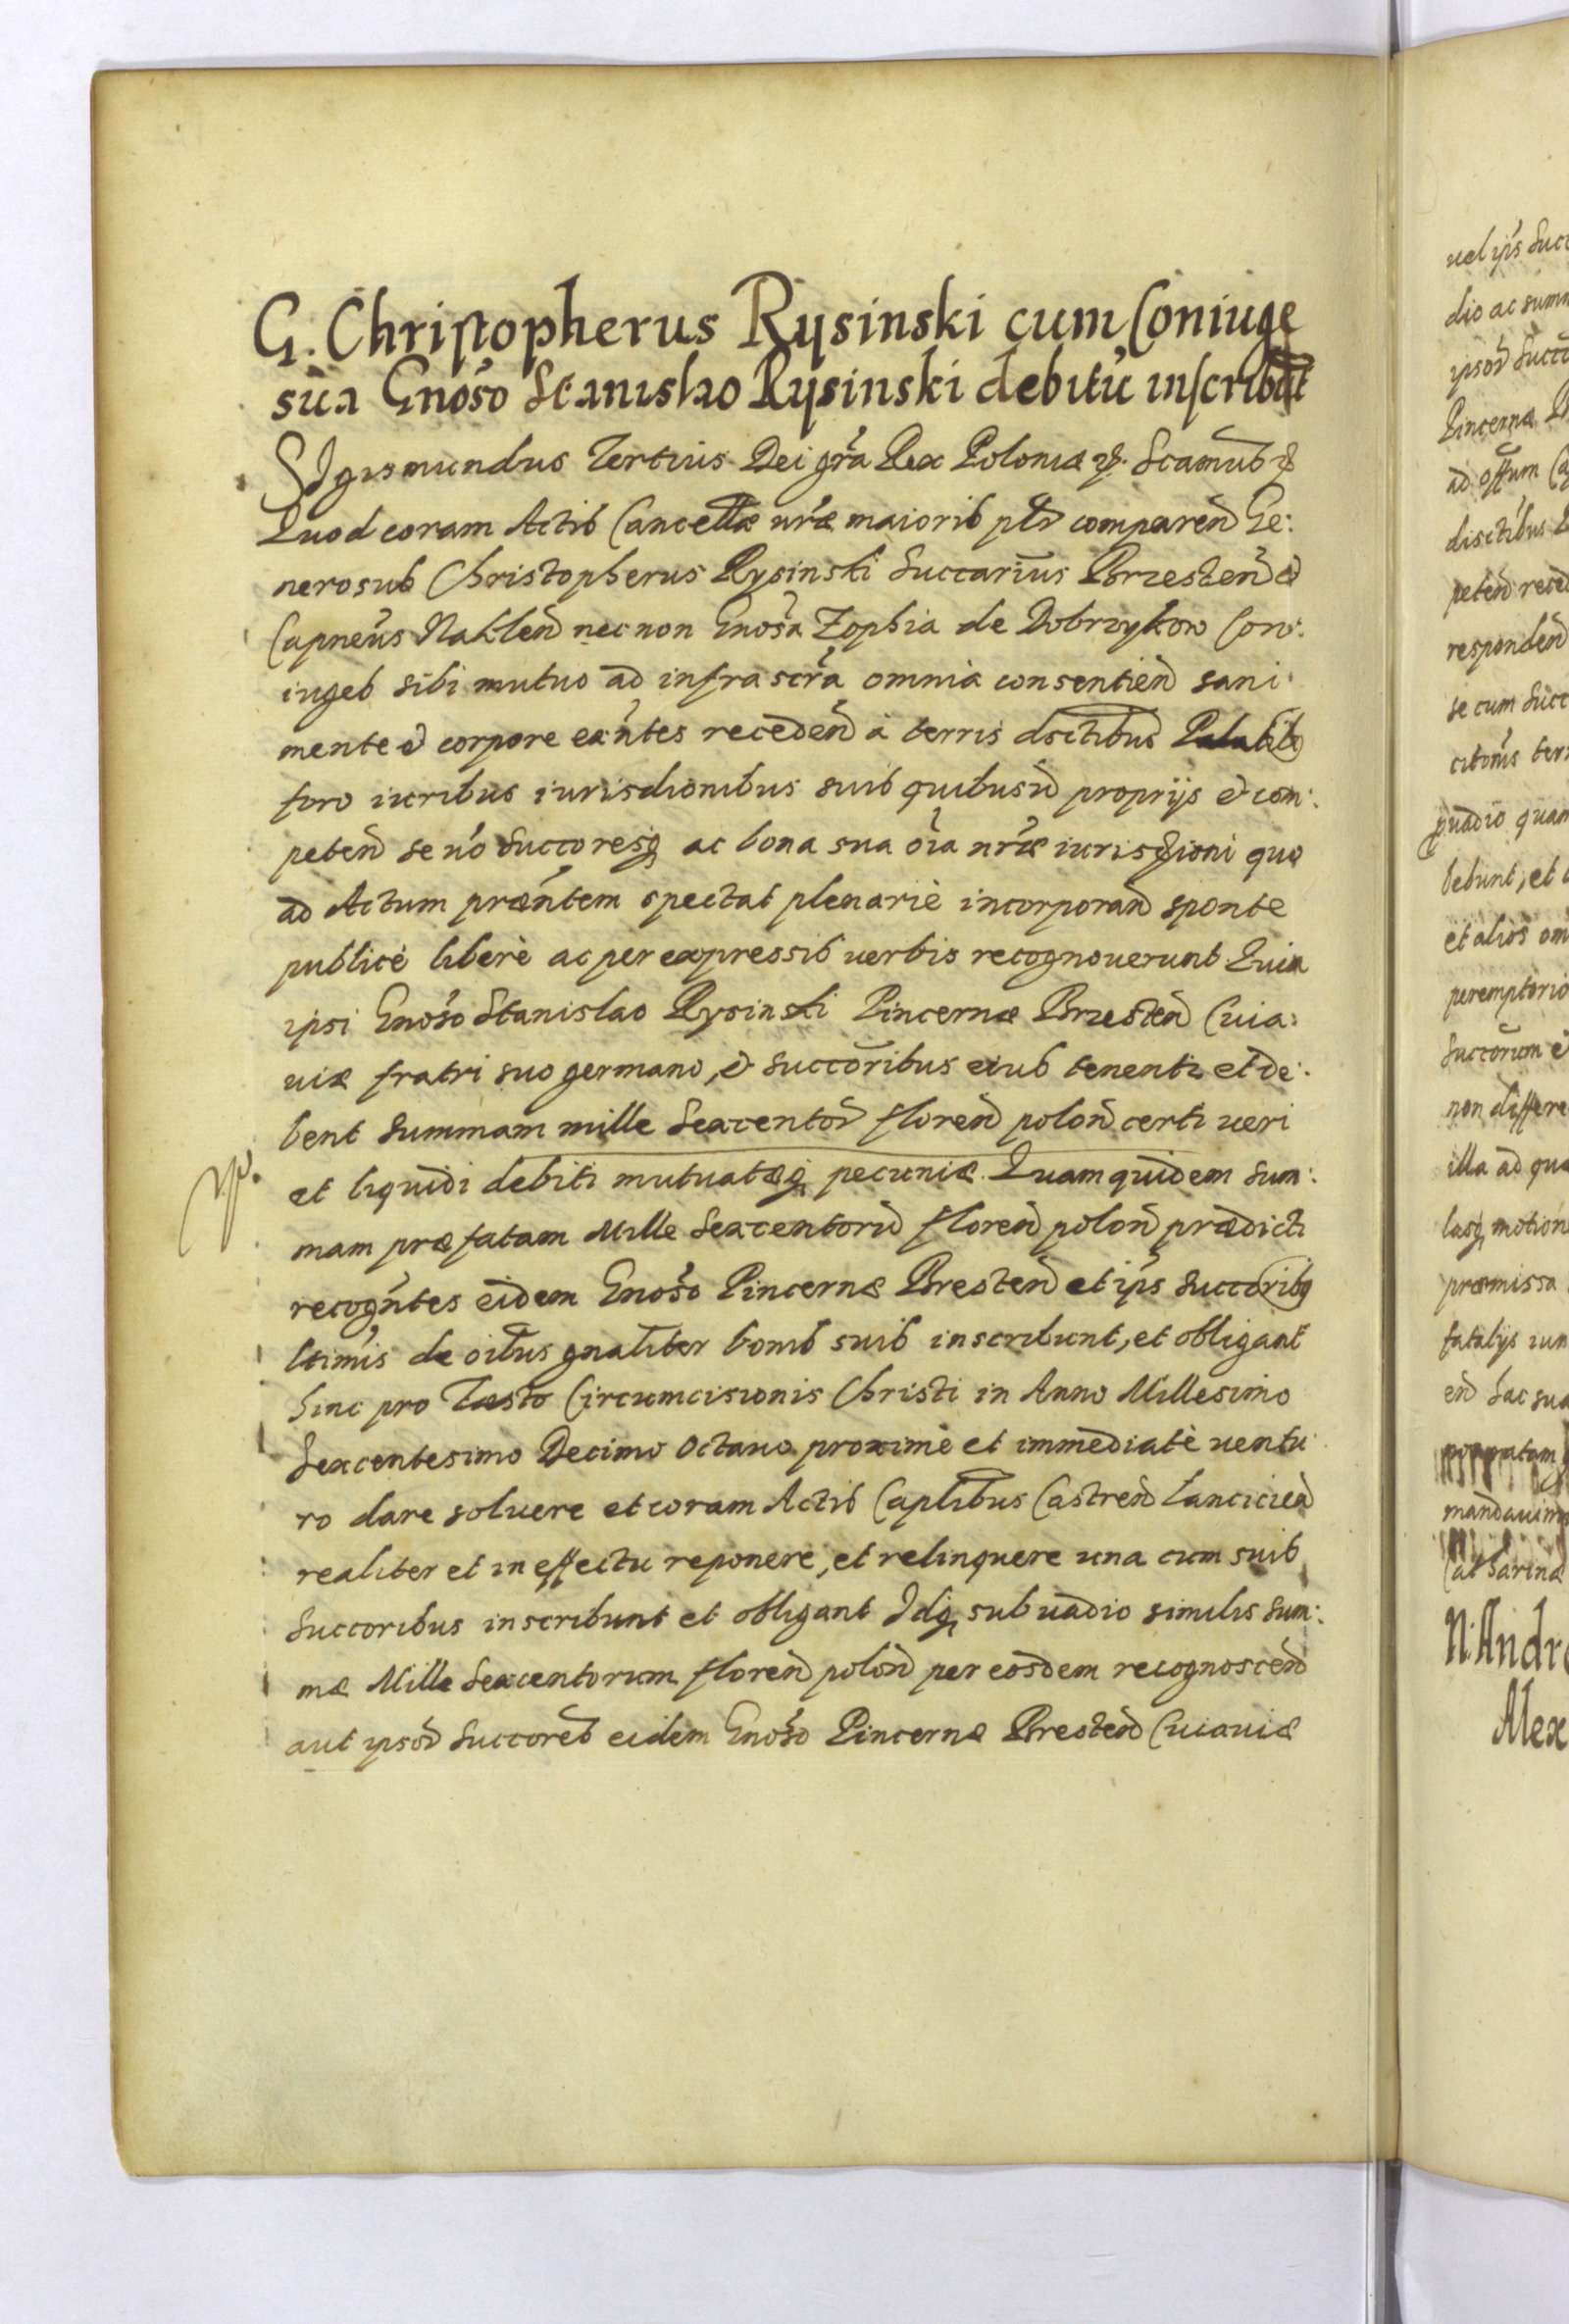 G. Christopherus Rysinski cum Coniuge
sua Gnoso Stanislao Rysinski debitu inscribūt
SIgismundus Tertius Dei gra Rex Poloniæ &. Scamus &
Quod coram Actis Cancellæ nræ maiorib plr comparen Ge:
nerosus Christopherus Rysinski Succarius Brzesten et
Capneus Naklen nec non Gnosa Zophia de Dobrzykow Con:
iuges sibi mutuo ad infra scra omnia consentien sani
mente et corpore exntes receden à terris dsctibus Palatib
foro iuribus iurisdionibus suis quibusu proprijs et com:
peten se uo Succoresq ac bona sua oia nræ iurisdioni quo
ad Actum præntem spectat plenariè incorporan sponte
publicè liberè ac per expressis uerbis recognouerunt Quia
ipsi Gnoso Stanislao Rysinski Pincernæ Brzesten Cuia:
uiæ fratri suo germano, et Succoribus eius tenentr et de:
bent Summam mille Sexcentor floren polon certi ueri
et liquidi debiti mutuatæq pecuniæ. Quam quidem Sum:
mam præfatam Mille Sexcentoru floren polon prædicti
recogntes eidem Gnoso Pincernæ Bresten et ips Succoribq
ltimis de oibus gnaliter bonis suis inscribunt, et obligant
hinc pro Festo Circumcisionis Christi in Anno Millesimo
Sexcentesimo Decimo Octauo proximè et immediatè uentu
ro dare soluere et coram Actis Caplibus Castren Lancicien
realiter et in effectu reponere, et relinquere una cum suis
Succoribus inscribunt et obligant Idq sub uadio similis Sum:
mæ Mille Sexcentorum floren polon per eosdem recognoscen
aut ipsor Succores eidem Gnoso Pincernæ Bresten Cuiauiæ
uel ips Succ
dio ac summ
ipsor Succo
Pincernæ
ad offum
disctibus
peten reced
responden
se cum Succ
citonis ter
uadio quam
bebunt, et
et alios om
peremptorio
Succorum et
non differe
illa ad quæ
lasq motion
præmissa
fatalijs iun
en hac sua
mandauimus
Catharina
N. Andre
Alex